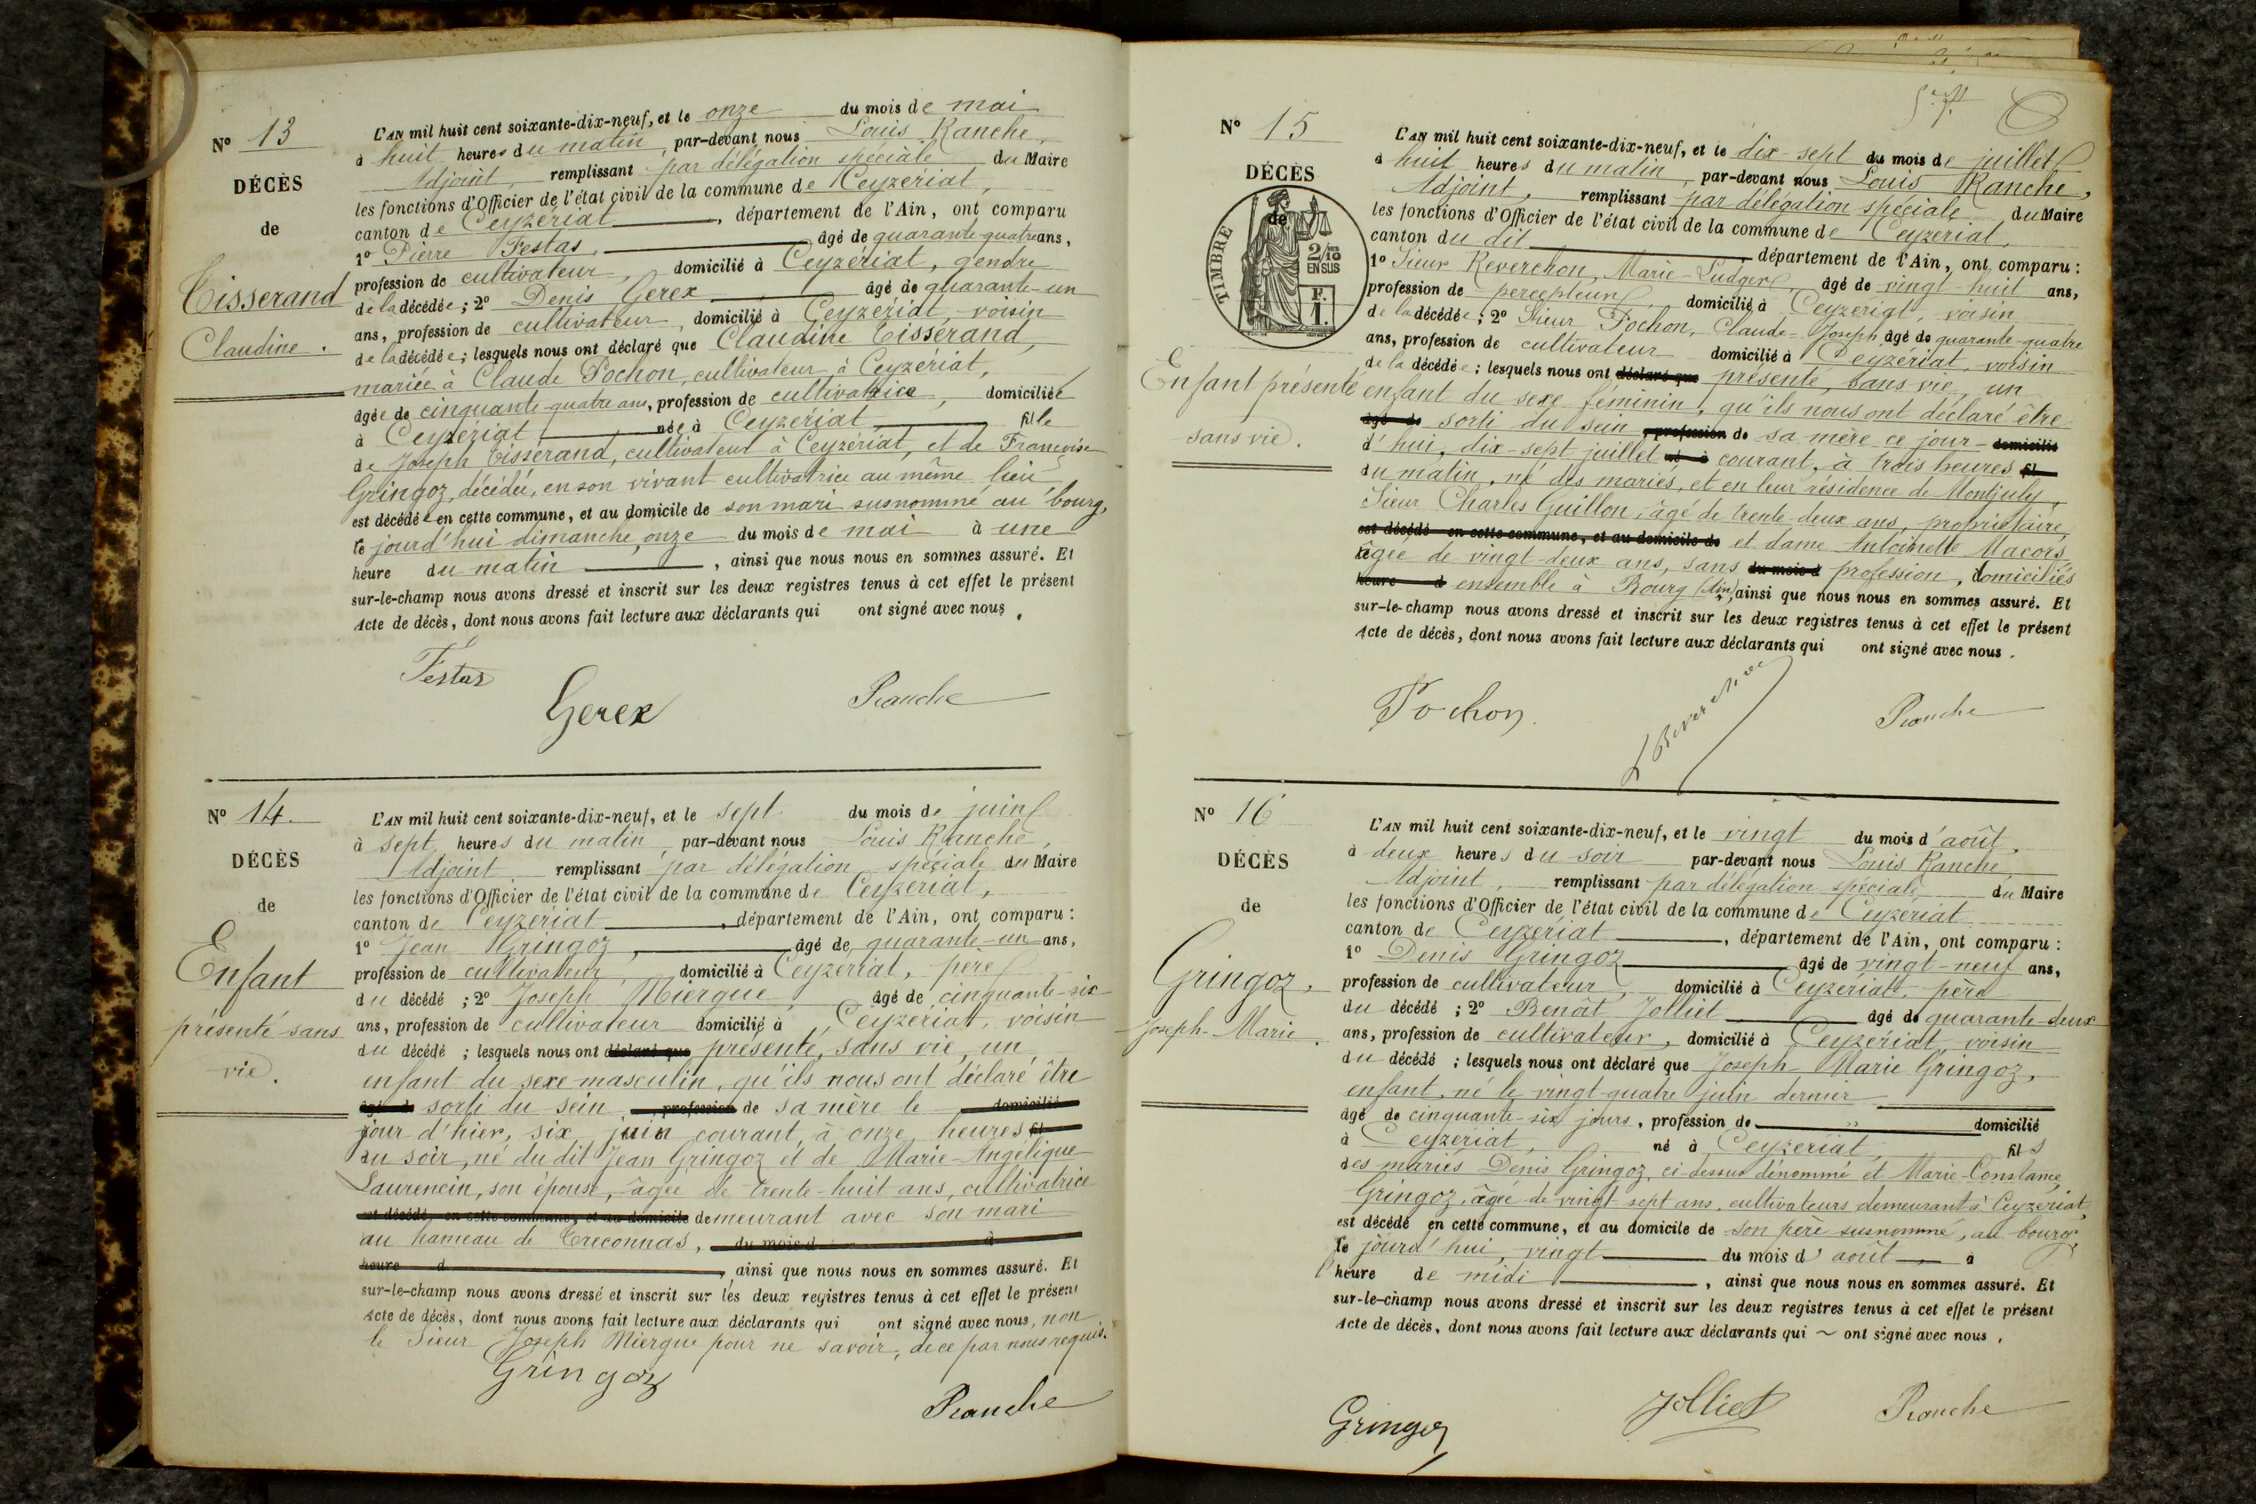 N° 13
DÉCÈS
de
Tisserand
Claudine.
L'AN mil huit cent soixante-dix-neuf, et le onze du mois de mai
à huit heures du matin, par-devant nous Louis Ranche,
Adjoint, remplissant par délégation spéciale du Maire
les fonctions d'Officier de l'état civil de la commune de Ceyzériat,
canton de Ceyzériat, département de l'Ain, ont comparu
1° Pierre Festas, âgé de quarante-quatre ans,
profession de cultivateur, domicilié à Ceyzériat, gendre
de la décédée; 2° Denis Gerex âgé de quarante-un
ans, profession de cultivateur, domicilié à Ceyzériat, voisin
de la décédée; lesquels nous ont déclaré que Claudine Tisserand,
mariée à Claude Pochon, cultivateur à Ceyzériat,
âgée de cinquante-quatre ans, profession de cultivatrice, domiciliée
à Ceyzériat, née à Ceyzériat, fille
de Joseph Tisserand, cultivateur à Ceyzériat, et de Françoise
Gringoz, décédée, en son vivant cultivatrice au même lieu
est décédée en cette commune, et au domicile de son mari susnommé au bourg,
le jourd'hui dimanche, onze du mois de mai à une
heure du matin, ainsi que nous nous en sommes assuré. Et
sur-le-champ nous avons dressé et inscrit sur les deux registres tenus à cet effet le présent
Acte de décès, dont nous avons fait lecture aux déclarants qui ont signé avec nous.
Festas
Gerex
Ranche
N° 14
DÉCÈS
de
Enfant
présenté sans
vie.
L'AN mil huit cent soixante-dix-neuf, et le sept du mois de juin
à sept heures du matin, par-devant nous Louis Ranche,
Adjoint remplissant par délégation spéciale du Maire
les fonctions d'Officier de l'état civil de la commune de Ceyzériat,
canton de Ceyzériat, département de l'Ain, ont comparu :
1° Jean Gringoz, âgé de quarante-un ans,
profession de cultivateur, domicilié à Ceyzériat, père
du décédé ; 2° Joseph Miergue, âgé de cinquante-six
ans, profession de cultivateur domicilié à Ceyzériat, voisin
du décédé ; lesquels nous ont déclaré que présenté, sans vie, un
enfant du sexe masculin, qu'ils nous ont déclaré être
âgé de sorti du sein profession de sa mère le domicilié
jour d'hier, six juin courant, à onze heures fil
du soir, né du dit Jean Gringoz et de Marie-Angélique
Laurencin, son épouse, âgée de trente-huit ans, cultivatrice
est décédé en cette commune, et au domicile demeurant avec son mari
au hameau de Treconnas, du mois d à
heure d, ainsi que nous nous en sommes assuré. Et
sur-le-champ nous avons dressé et inscrit sur les deux registres tenus à cet effet le présent
Acte de décès, dont nous avons fait lecture aux déclarants qui ont signé avec nous, non
le Sieur Joseph Miergue pour ne savoir, de ce par nous requis.
Gringoz
Ranche
N° 15
DÉCÈS
de
TIMBRE
2/10
EN SUS
F.
1.
Enfant présenté
sans vie.
L'AN mil huit cent soixante-dix-neuf, et le dix-sept du mois de juillet
à huit heures du matin, par-devant nous Louis Ranche,
Adjoint, remplissant par délégation spéciale du Maire
les fonctions d'Officier de l'état civil de la commune de Ceyzériat,
canton du dit, département de l'Ain, ont comparu :
1° Sieur Reverchon, Marie-Ludger, âgé de vingt-huit ans,
profession de percepteur, domicilié à Ceyzériat, voisin
de la décédée; 2° Sieur Pochon, Claude-Joseph, âgé de quarante-quatre
ans, profession de cultivateur domicilié à Ceyzériat, voisin
de la décédée; lesquels nous ont déclaré que présenté, sans vie, un
enfant du sexe féminin, qu'ils nous ont déclaré être
âgé de sorti du sein profession de sa mère ce jour- domicilié
d'hui, dix-sept juillet né à courant, à trois heures fil
du matin, né des mariés, et en leur résidence de Montjuly,
Sieur Charles Guillon, âgé de trente-deux ans, propriétaire,
est décédé en cette commune, et au domicile de et dame Antoinette Macors
âgée de vingt-deux ans, sans du mois d profession, domiciliés
heure d ensemble à Bourg (Ain), ainsi que nous nous en sommes assuré. Et
sur-le-champ nous avons dressé et inscrit sur les deux registres tenus à cet effet le présent
Acte de décès, dont nous avons fait lecture aux déclarants qui ont signé avec nous.
Pochon
Ranche
N° 16
DÉCÈS
de
Gringoz,
Joseph-Marie.
L'AN mil huit cent soixante-dix-neuf, et le vingt du mois d'août,
à deux heures du soir par-devant nous Louis Ranche
Adjoint, remplissant par délégation spéciale du Maire
les fonctions d'Officier de l'état civil de la commune de Ceyzériat
canton de Ceyzériat, département de l'Ain, ont comparu :
1° Denis Gringoz âgé de vingt-neuf ans,
profession de cultivateur, domicilié à Ceyzériat, père
du décédé ; 2° Benoît Jolliet âgé de quarante-deux
ans, profession de cultivateur, domicilié à Ceyzériat, voisin
du décédé ; lesquels nous ont déclaré que Joseph-Marie Gringoz,
enfant, né le vingt-quatre juin dernier
âgé de cinquante-six jours, profession de " domicilié
à Ceyzériat, né à Ceyzériat, fils
des mariés Denis Gringoz, ci-dessus dénommé et Marie-Constance
Gringoz, âgée de vingt-sept ans, cultivateurs demeurant à Ceyzériat,
est décédé en cette commune, et au domicile de son père susnommé, au bourg,
le jourd'hui, vingt du mois d'août à
l'heure de midi, ainsi que nous nous en sommes assuré. Et
sur-le-champ nous avons dressé et inscrit sur les deux registres tenus à cet effet le présent
Acte de décès, dont nous avons fait lecture aux déclarants qui ~ ont signé avec nous.
Gringoz
Jolliet
Ranche